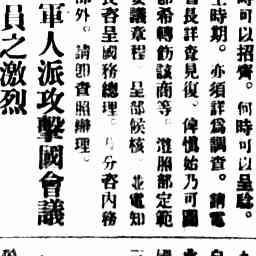 時可以招齊。何時可以呈驗。
時期。亦須詳爲調查。請電
會長詳查見復。俾慎始乃可圖
部希轉飭該商等。遵照部定範
議章程。呈部候核。並電知
長咨呈國務總理。分咨內務
部外。請卽查照辦理。
軍人派攻擊國會議
員之激烈